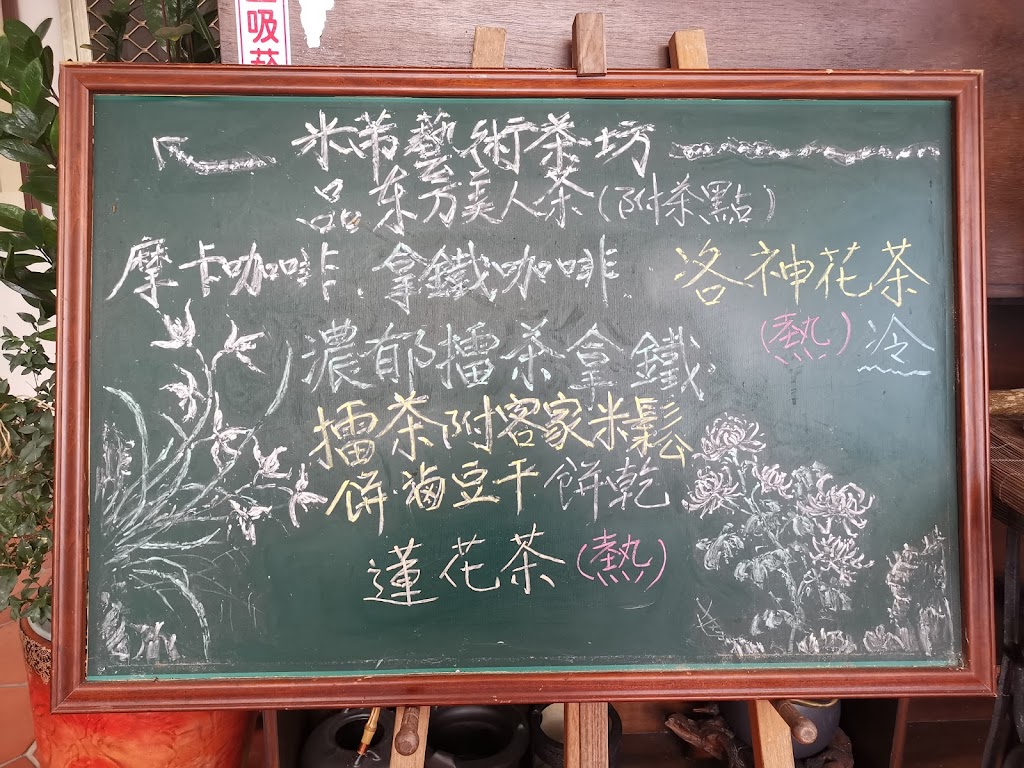 吸菸
米芾藝術茶坊
品东方美人茶(附茶點)
摩卡咖啡.拿鐵咖啡
洛神花茶
(熱)冷
濃郁擂茶拿鐵
擂茶附客家米鬆
餅滷豆干餅乾
蓮花茶(熱)